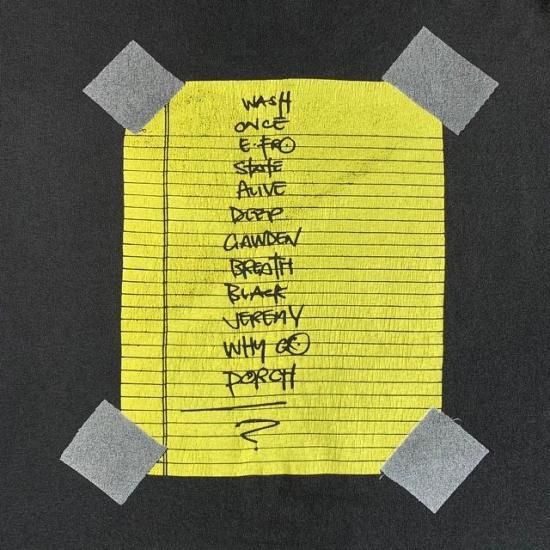 WASH
ONCE
E.FRO
State
ALIVE
DEEP
GAWDEN
BREATH
BLACK
JEREMY
WHY GO
PORCH
?